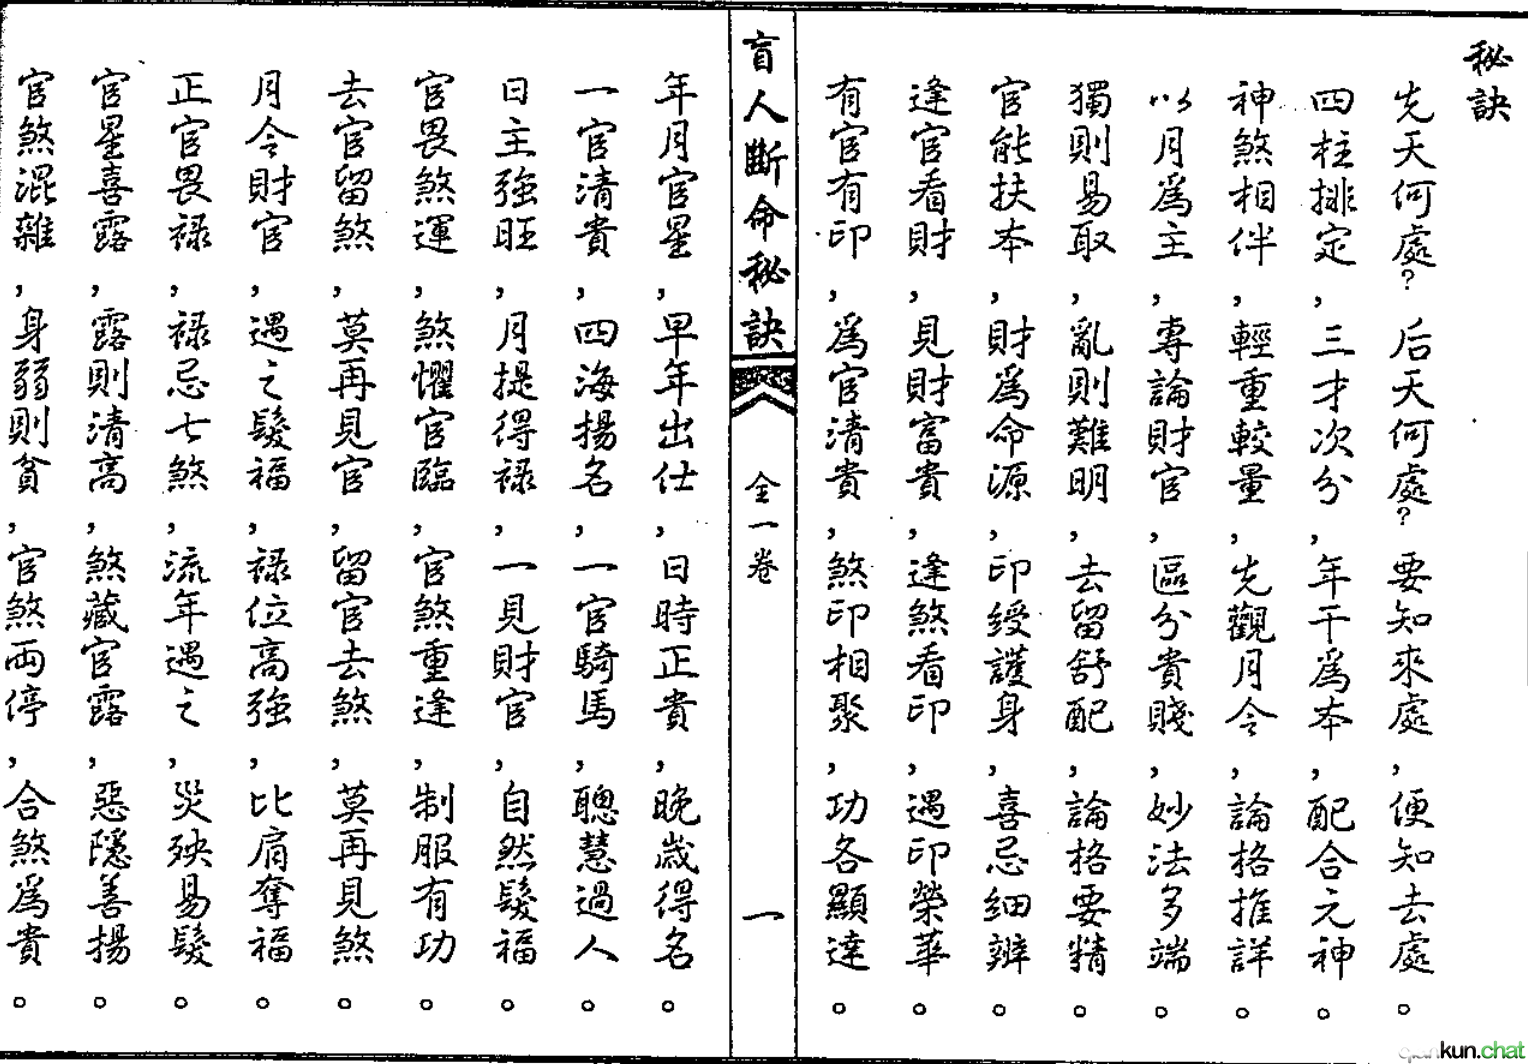 秘訣
先天何處？后天何處？要知來處，便知去處。
四柱排定，三才次分，年干爲本，配合元神。
神煞相伴，輕重較量，先觀月令，論格推詳。
以月爲主，專論財官，區分貴賤，妙法多端。
獨則易取，亂則難明，去留舒配，論格要精。
官能扶本，財爲命源，印綬護身，喜忌細辨。
逢官看財，見財富貴，逢煞看印，遇印榮華。
有官有印，爲官清貴，煞印相聚，功各顯達。
盲人斷命秘訣 全一卷 一
年月官星，早年出仕，日時正貴，晚歲得名。
一官清貴，四海揚名，一官騎馬，聰慧過人。
日主強旺，月提得禄，一見財官，自然髮福。
官畏煞運，煞懼官臨，官煞重逢，制服有功。
去官留煞，莫再見官，留官去煞，莫再見煞。
月令財官，遇之髮福，禄位高強，比肩奪福。
正官畏禄，禄忌七煞，流年遇之，災殃易髮。
官星喜露，露則清高，煞藏官露，惡隱善揚。
官煞混雜，身弱則貧，官煞兩停，合煞爲貴。
kun.chat